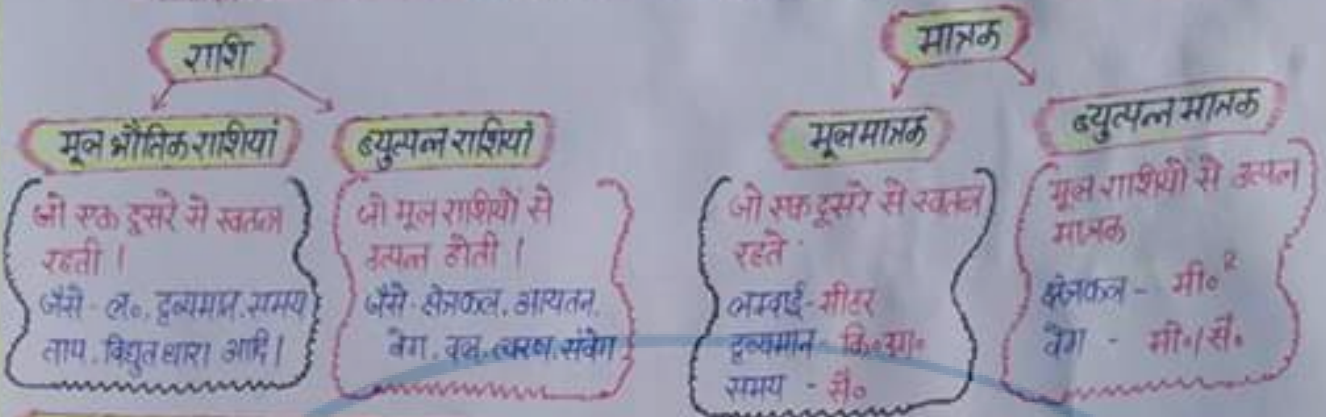 राशि
मूल भौतिक राशियां
जो एक दूसरे से स्वतन्त्र
रहती ।
जैसे - ल०, द्रव्यमान, समय
ताप, विद्युत धारा आदि ।
व्युत्पन्न राशियां
जो मूल राशियों से
उत्पन्न होती ।
जैसे - क्षेत्रफल, आयतन,
वेग, बल, त्वरण, संवेग
मात्रक
मूल मात्रक
जो एक दूसरे से स्वतन्त्र
रहते
लम्बाई - मीटर
द्रव्यमान - कि०ग्रा०
समय - सै०
व्युत्पन्न मात्रक
मूल राशियों से उत्पन्न
मात्रक
क्षेत्रफल - मी०²
वेग - मी०/सै०